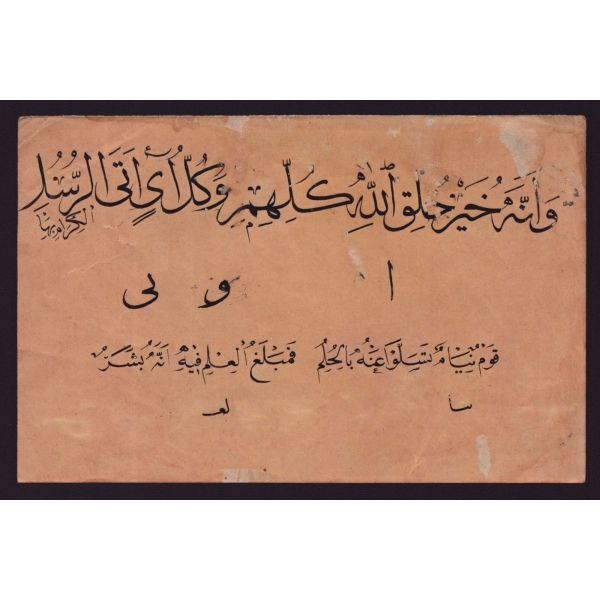 وَاَنَّهُ خَيْرُ خَلْقِ اللّٰهِ كُلِّهِمِ وَكُلُّ اٰيٍ اَتَى الرُّسُلُ
الكرام بها
ا و لى
قَوْمٌ نِيَامٌ تَسَلَّوْا عَنْهُ بِالْحُلُمِ فَمَبْلَغُ الْعِلْمِ فِيهِ اَنَّهُ بَشَرٌ
سا لعـ